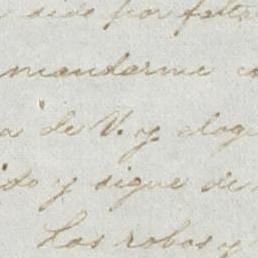 sido por falta
mandarme co
a de V. y elog
ido y sigue de
Los robos y